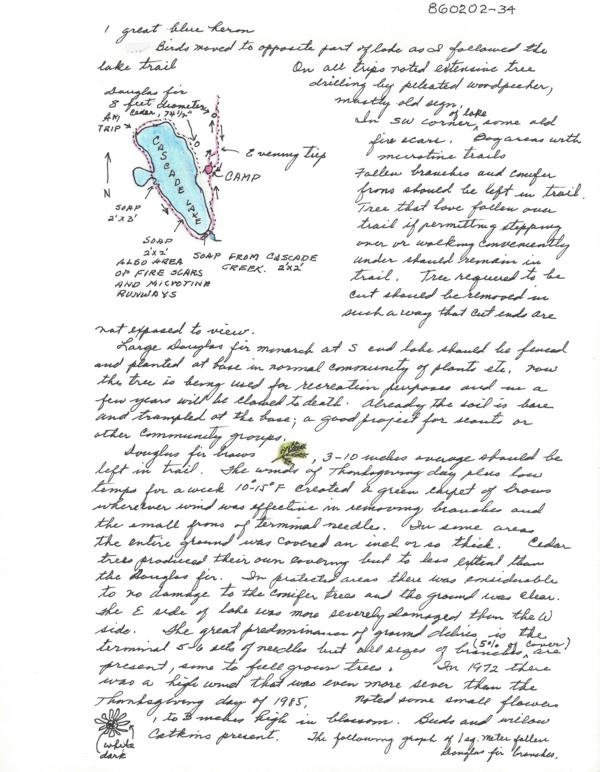 860202-34
1 great blue heron
Birds moved to opposite part of lake as I followed the
lake trail On all trips noted extensive tree
drilling by pileated woodpecker,
mostly old sign.
Douglas fir
8 feet diameter
Cedar, 74 1/2"
AM
TRIP
CASCADE LAKE
Evening trip
CAMP
N
SOAP
2'X3'
SOAP
2'X2'
ALSO AREA
OF FIRE SCARS
AND MICROTINE
RUNWAYS
SOAP FROM CASCADE
CREEK. 2'X2'
In SW corner of lake, some old
fire scars. Bog areas with
microtine trails
Fallen branches and conifer
frons should be left in trail.
Tree that have fallen over
trail if permitting stepping
over or walking conveniently
under should remain in
trail. Tree required to be
cut should be removed in
such a way that cut ends are
not exposed to view.
Large Douglas fir monarch at S end lake should be fenced
and planted at base in normal community of plants etc. now
the tree is being used for recreation purposes and in a
few years will be closed to death. Already the soil is bare
and trampled at the base; a good project for scouts or
other community groups.
Douglas fir brows , 3-10 inches average should be
left in trail. The winds of Thanksgiving day plus low
temps for a week 10°-15°F created a green carpet of brows
wherever wind was effective in removing branches and
the small frons of terminal needles. In some areas
the entire ground was covered an inch or so thick. Cedar
trees produced their own covering but to less extent than
the Douglas fir. In protected areas there was considerable
to no damage to the conifer trees and the ground was clear.
The E side of lake was more severely damaged than the W
side. The great predominance of ground debris is the
terminal 5-6 sets of needles but all sizes of branches (5% of cover) are
present, some to full grown trees. In 1972 there
was a high wind that was even more sever than the
Thanksgiving day of 1985. Noted some small flowers
, to 3 inches high in blossom. Buds and willow
(white
dark
Catkins present. The following graph of 1 sq. meter fallen
Douglas fir branches.